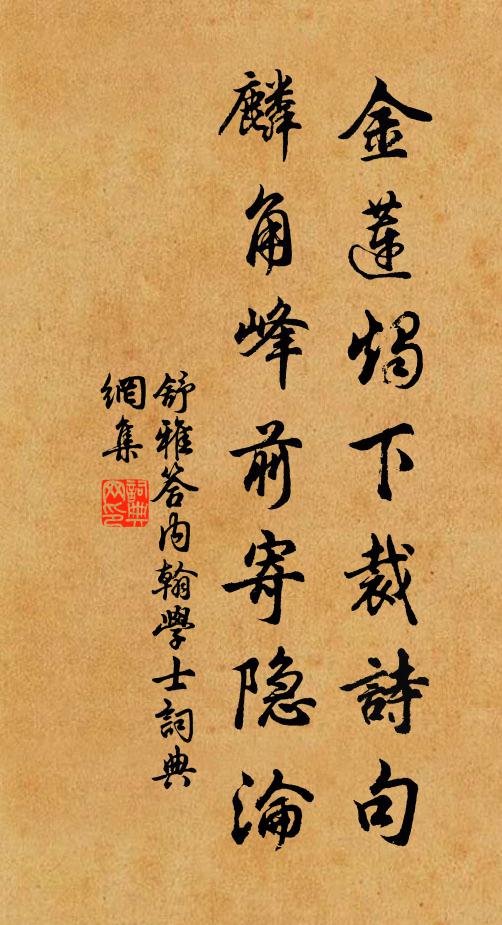 金蓮燭下裁詩句
麟角峰前寄隐淪
舒雅答内翰學士詞典
網集
詞典網印